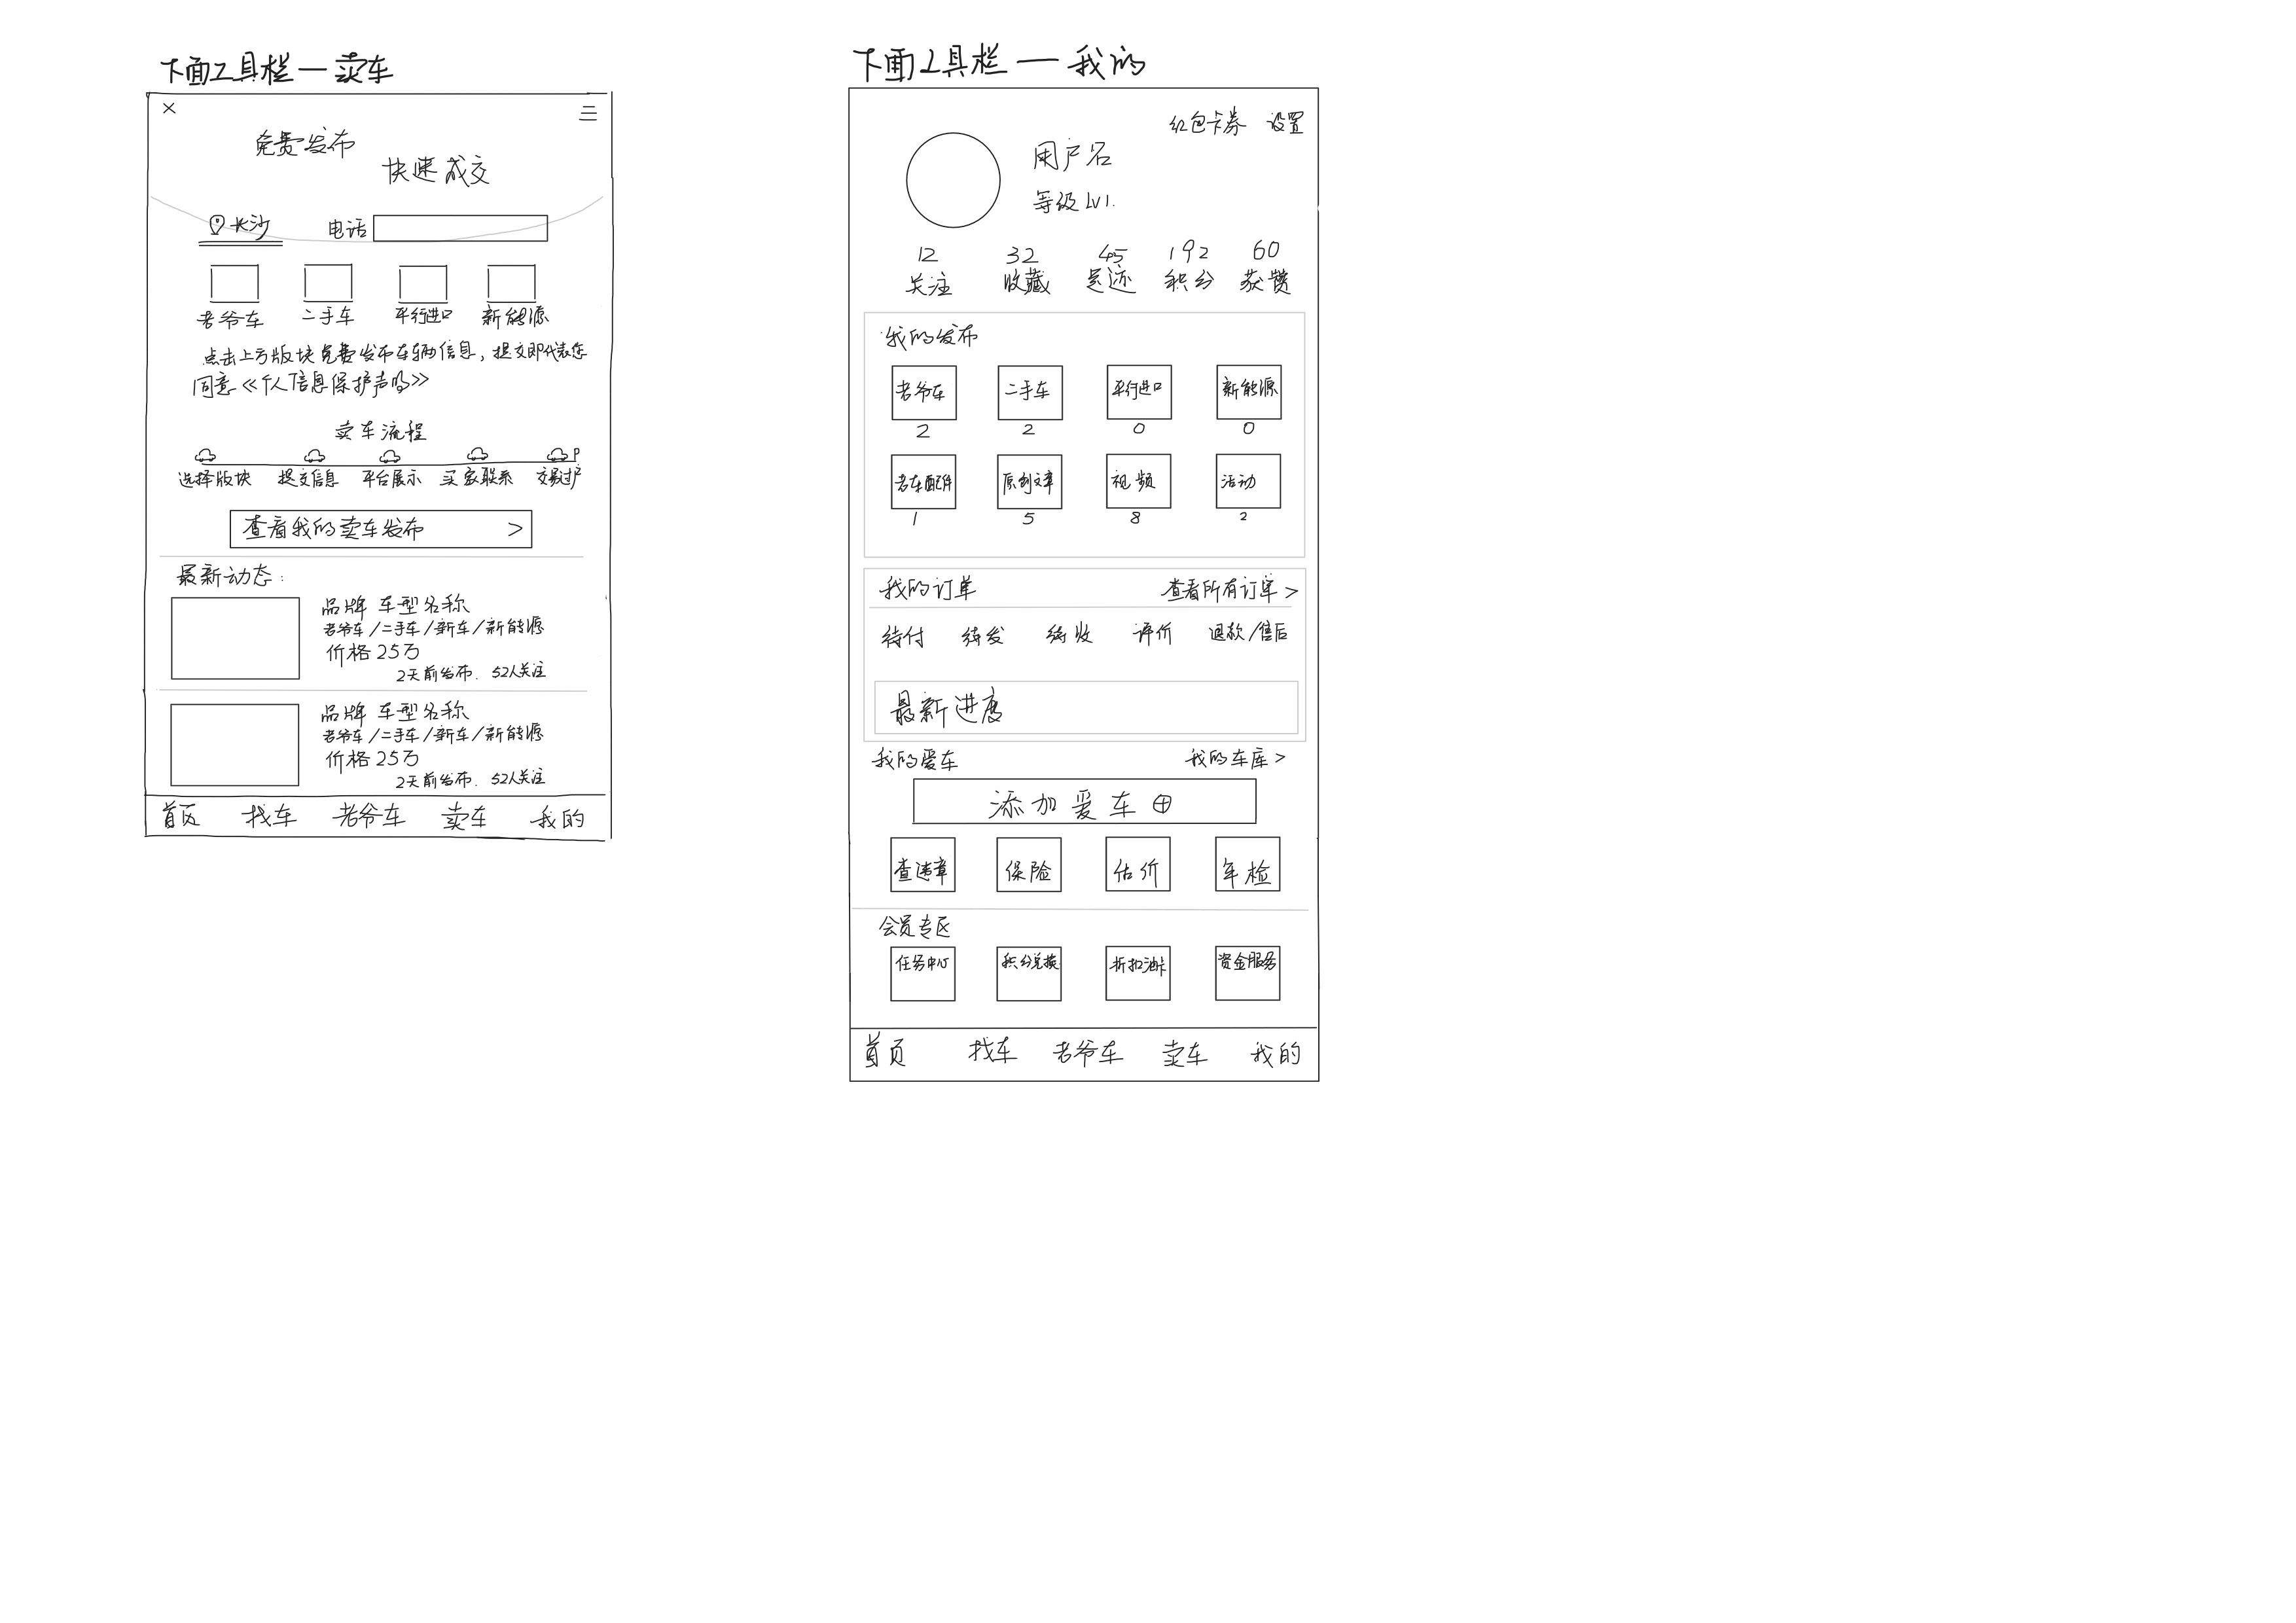 下面工具栏—卖车
×
免费发布
快速成交
长沙 电话
老爷车 二手车 平行进口 新能源
点击上方版块免费发布车辆信息，提交即代表您
同意《个人信息保护声明》
卖车流程
P
选择版块 提交信息 平台展示 买家联系 交易过户
查看我的卖车发布 >
最新动态：
品牌 车型名称
老爷车/二手车/新车/新能源
价格25万
2天前发布. 52人关注
品牌 车型名称
老爷车/二手车/新车/新能源
价格25万
2天前发布. 52人关注
首页 找车 老爷车 卖车 我的
下面工具栏—我的
红包卡券 设置
用户名
等级 LV1.
12 32 45 192 60
关注 收藏 足迹 积分 获赞
我的发布
老爷车 二手车 平行进口 新能源
2 2 0 0
老车配件 原创文章 视频 活动
1 5 8 2
我的订单 查看所有订单 >
待付 待发 待收 评价 退款/售后
最新进度
我的爱车 我的车库 >
添加爱车 ⊕
查违章 保险 估价 年检
会员专区
任务中心 积分兑换 折扣油卡 资金服务
首页 找车 老爷车 卖车 我的